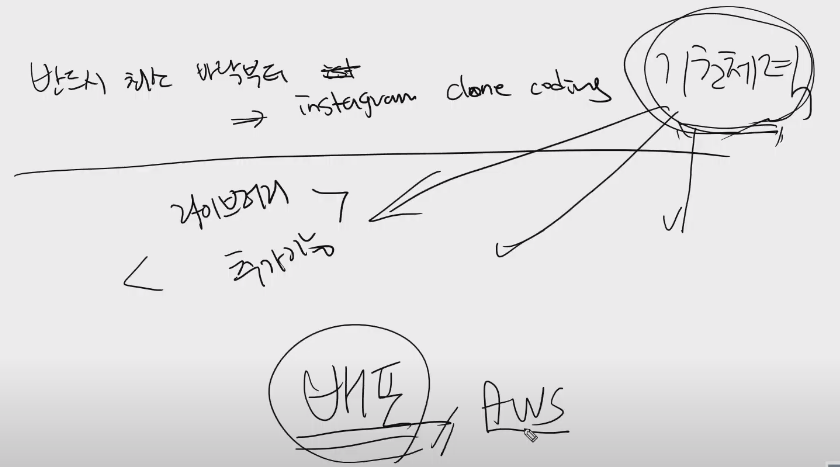 반드시 최소 바닥부터
⇒ instagram clone coding
기출문제
라이브러리
추가기능
배포 AWS